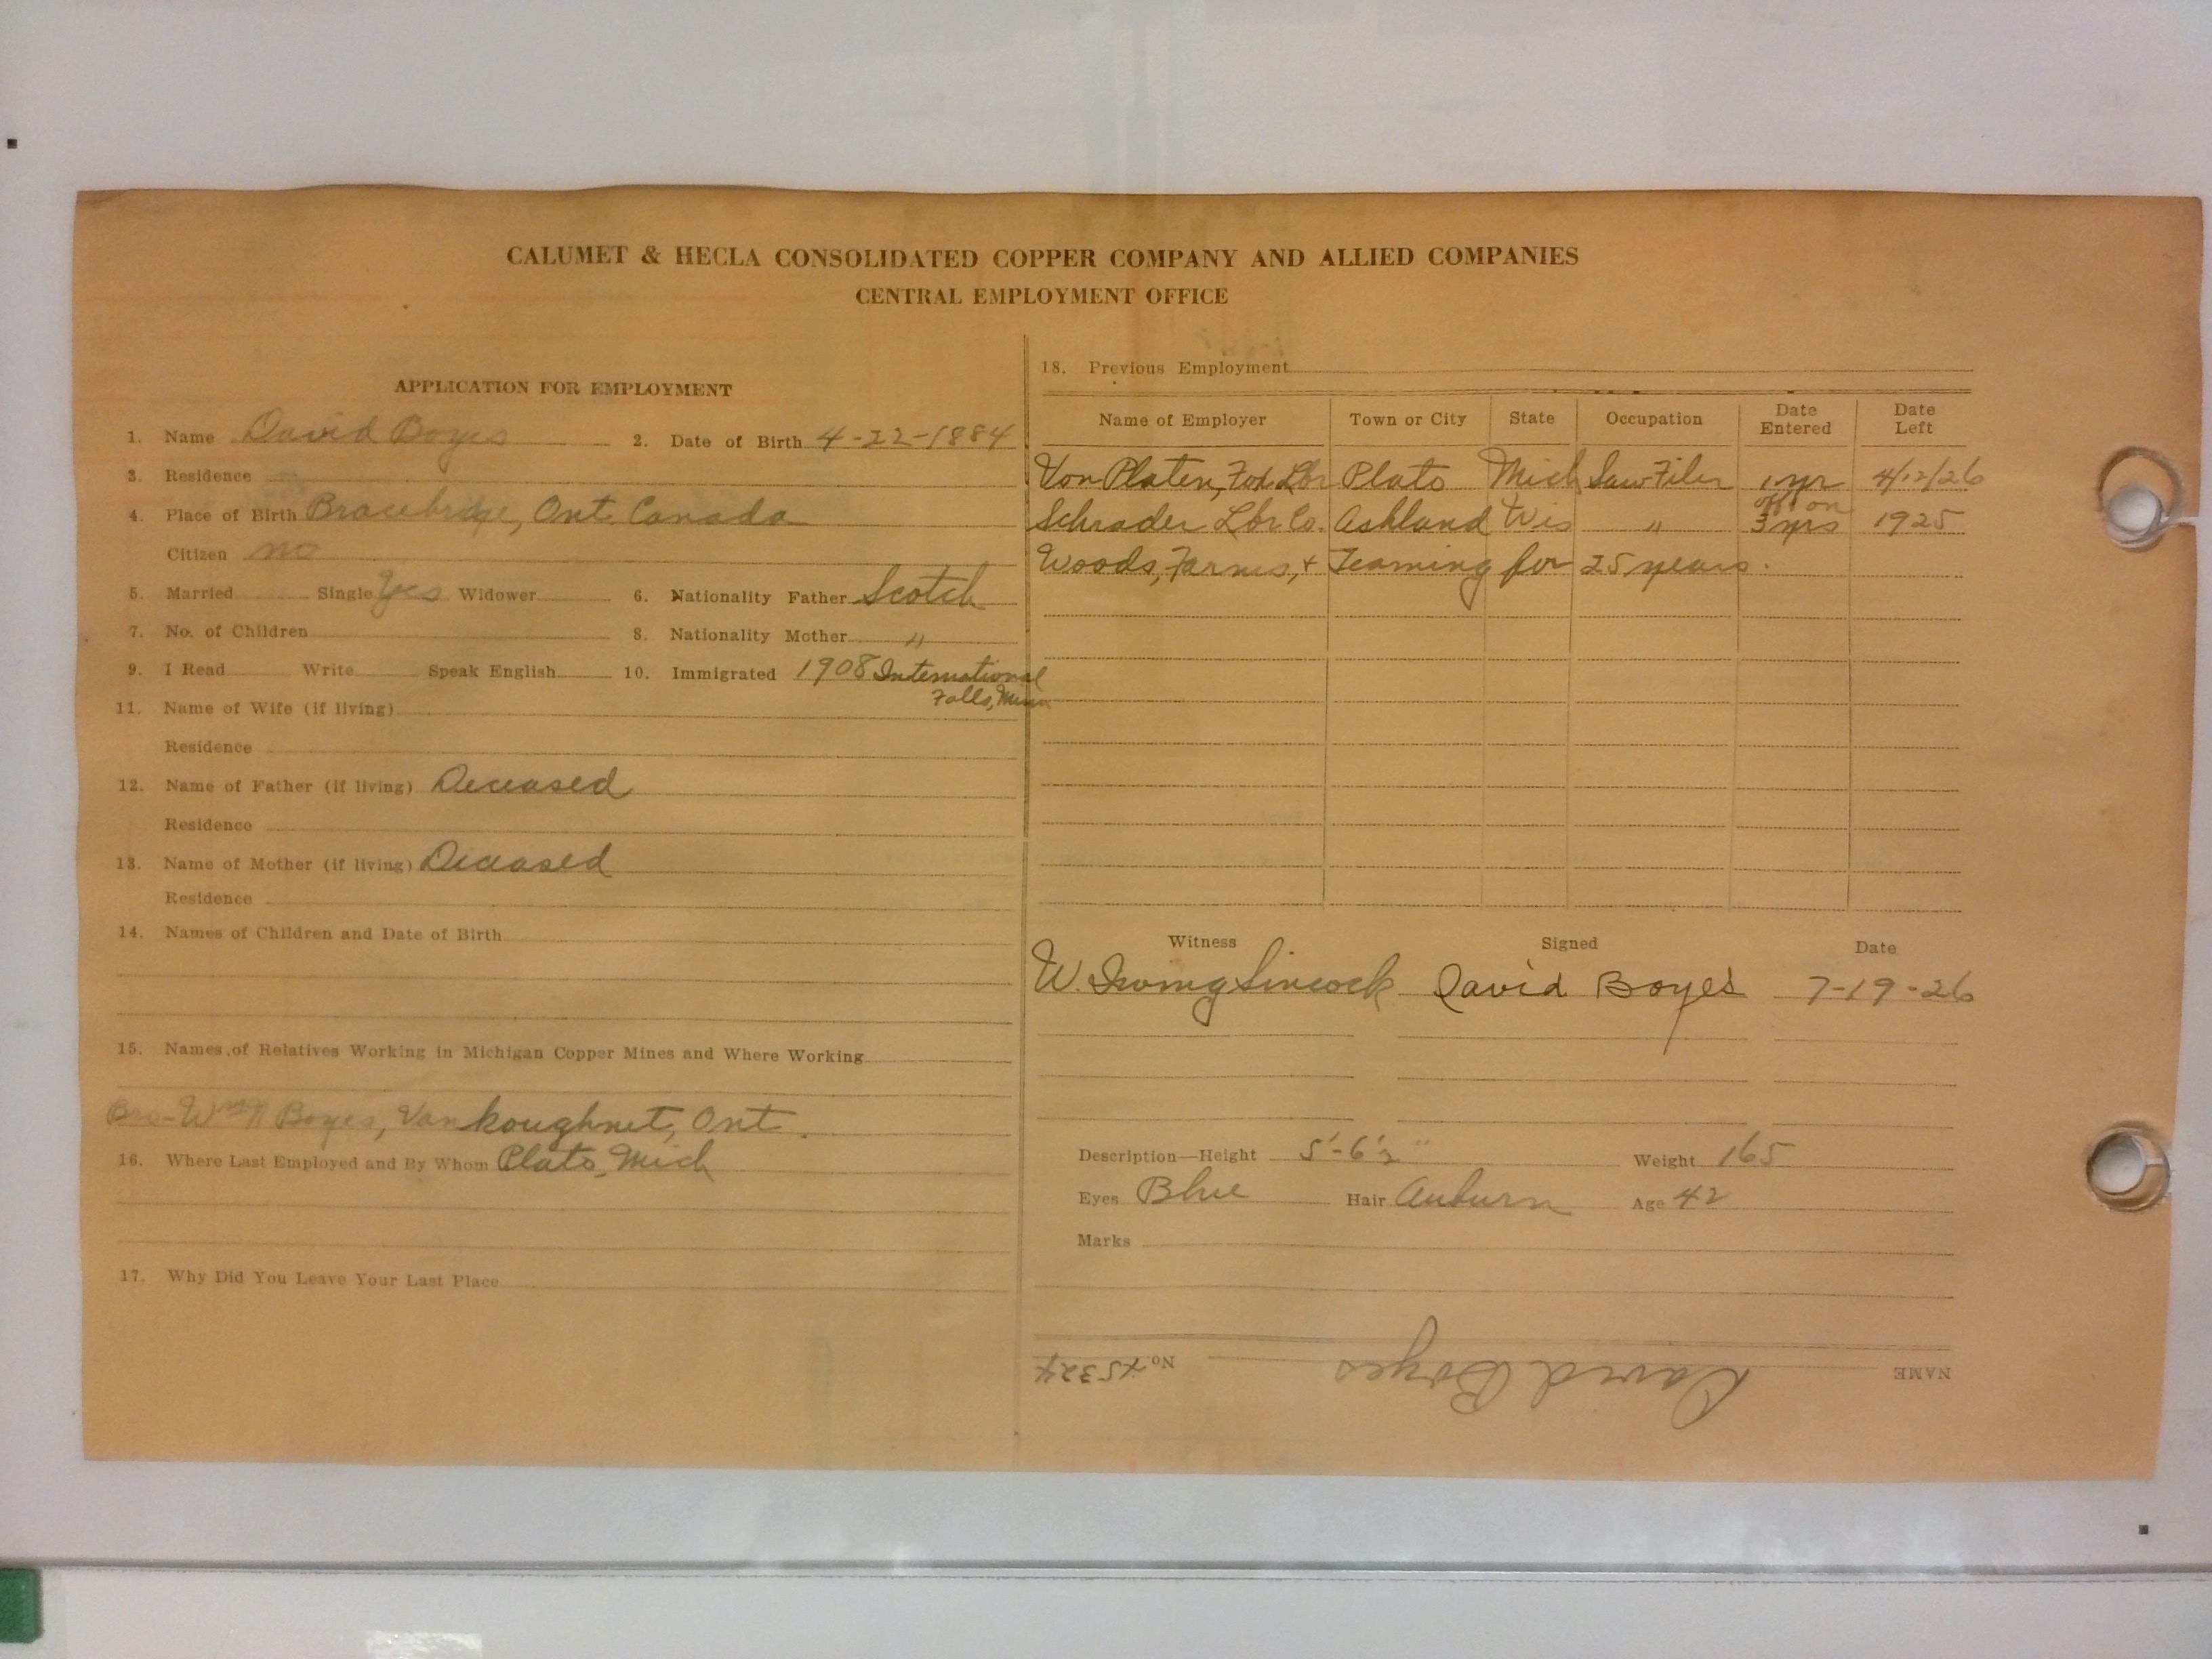 CALUMET & HECLA CONSOLIDATED COPPER COMPANY AND ALLIED COMPANIES
CENTRAL EMPLOYMENT OFFICE
APPLICATION FOR EMPLOYMENT
1. Name David Boyes 2. Date of Birth 4-22-1884
3. Residence
4. Place of Birth Bracebridge, Ont. Canada
Citizen no
5. Married Single Yes Widower 6. Nationality Father Scotch
7. No. of Children 8. Nationality Mother "
9. I Read Write Speak English 10. Immigrated 1908 International
Falls, Minn
11. Name of Wife (if living)
Residence
12. Name of Father (if living) Deceased
Residence
13. Name of Mother (if living) Deceased
Residence
14. Names of Children and Date of Birth
15. Names of Relatives Working in Michigan Copper Mines and Where Working
Bro-Wm Boyes, Vankoughnet, Ont.
16. Where Last Employed and By Whom Plato, Mich
17. Why Did You Leave Your Last Place
18. Previous Employment
Name of Employer Town or City State Occupation Date Entered Date Left
Von Platen, Fox Lbr Plato Mich Saw Filer 1 yr 4/12/26
off on
Schrader Lbr Co. Ashland Wis " 3 yrs 1925
Woods, Farms, + Teaming for 25 years.
Witness Signed Date
W. Irving Sincock David Boyes 7-19-26
Description—Height 5'-6½" Weight 165
Eyes Blue Hair Auburn Age 42
Marks
NAME David Boyes No.